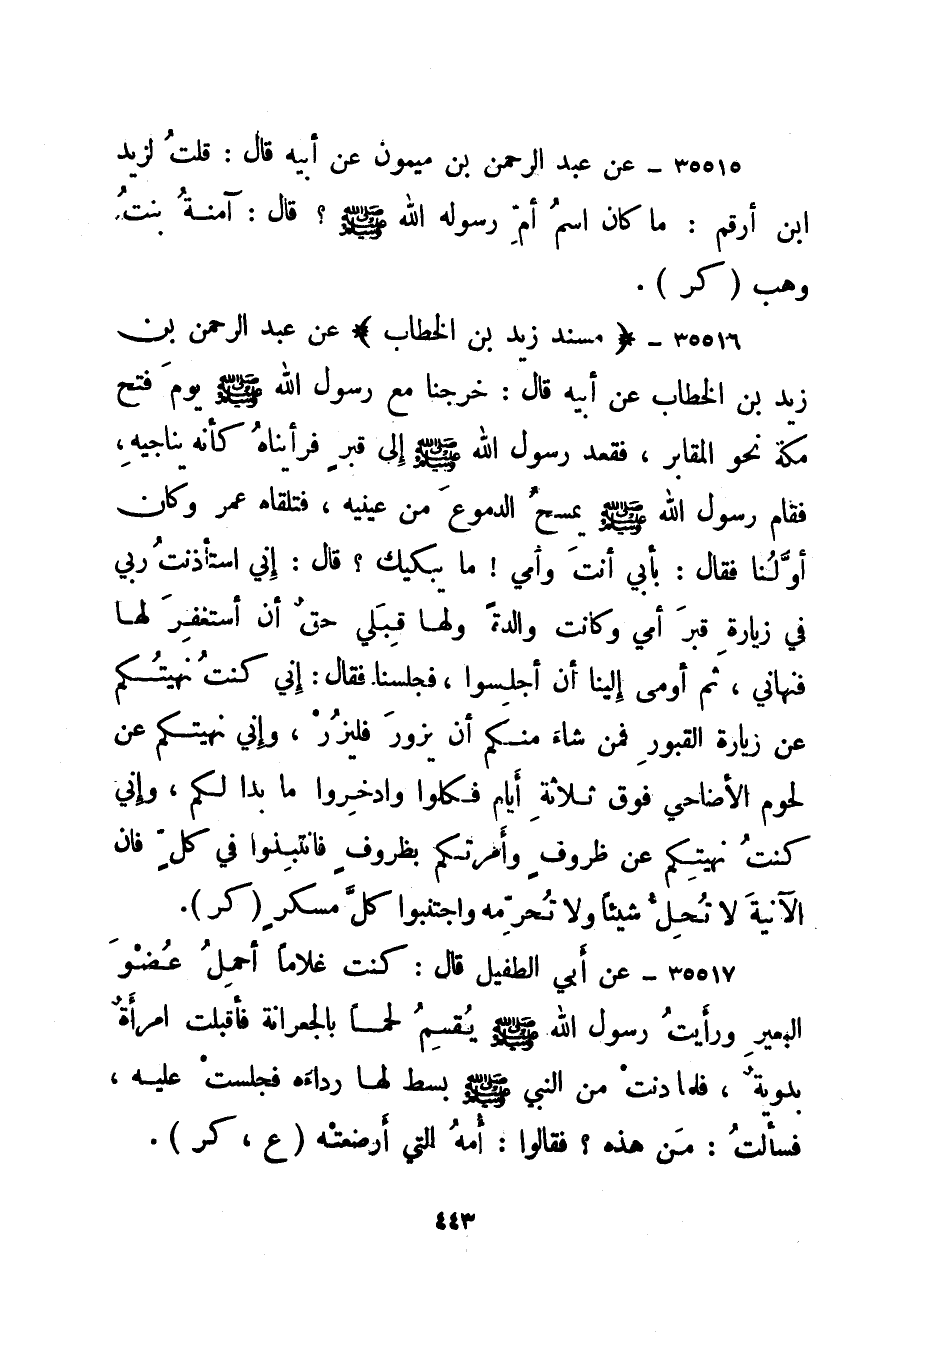 ٣٥٥١٥ ـ عن عبد الرحمن بن ميمون عن أبيه قال : قلتُ لزيد
ابن أرقم : ما كان اسمُ أمِّ رسوله الله ﷺ ؟ قال : آمنةُ بنتُ
وهب ( كر ) .
٣٥٥١٦ ـ ﴿ مسند زيد بن الخطاب ﴾ عن عبد الرحمن بن
زيد بن الخطاب عن أبيه قال : خرجنا مع رسول الله ﷺ يومَ فتح
مكة نحو المقابر ، فقعد رسول الله ﷺ إلى قبرٍ فرأيناهُ كأنه يناجيهِ ،
فقام رسول الله ﷺ يمسحُ الدموعَ من عينيه ، فتلقاه عمر وكان
أوَّلُنا فقال : بأبي أنتَ وأمي ! ما يبكيك ؟ قال : إني استأذنتُ ربي
في زيارةِ قبرَ أمي وكانت والدةً ولها قِبَلي حقٌ أن أستغفِرَ لها
فنهاني ، ثم أومى إلينا أن أجلِسوا ، فجلسنا فقال : إني كنتُ نهيتُكم
عن زيارة القبورِ فمن شاءَ منكم أن يزورَ فليزُرْ ، وإني نهيتكم عن
لحوم الأضاحي فوق ثلاثةِ أيام فكلوا وادخِروا ما بدا لكم ، وإني
كنتُ نهيتِكم عن ظروفٍ وأمرتكم بظروفٍ فانتبِذوا في كلٍّ فان
الآنيةَ لا تُحِلُّ شيئاً ولا تُحرِّمه واجتنبوا كلَّ مسكرٍ ( كر ) .
٣٥٥١٧ ـ عن أبي الطفيل قال : كنت غلاماً أحمِلُ عُضْوَ
البعيرِ ورأيتُ رسول الله ﷺ يُقسِمُ لحماً بالجعرانة فأقبلت امرأةٌ
بدويةٌ ، فلما دنتْ من النبي ﷺ بسط لها رداءَه فجلستْ عليه ،
فسألتُ : مَن هذه ؟ فقالوا : أُمهُ التي أَرضعتْه ( ع ، كر ) .
٤٤٣